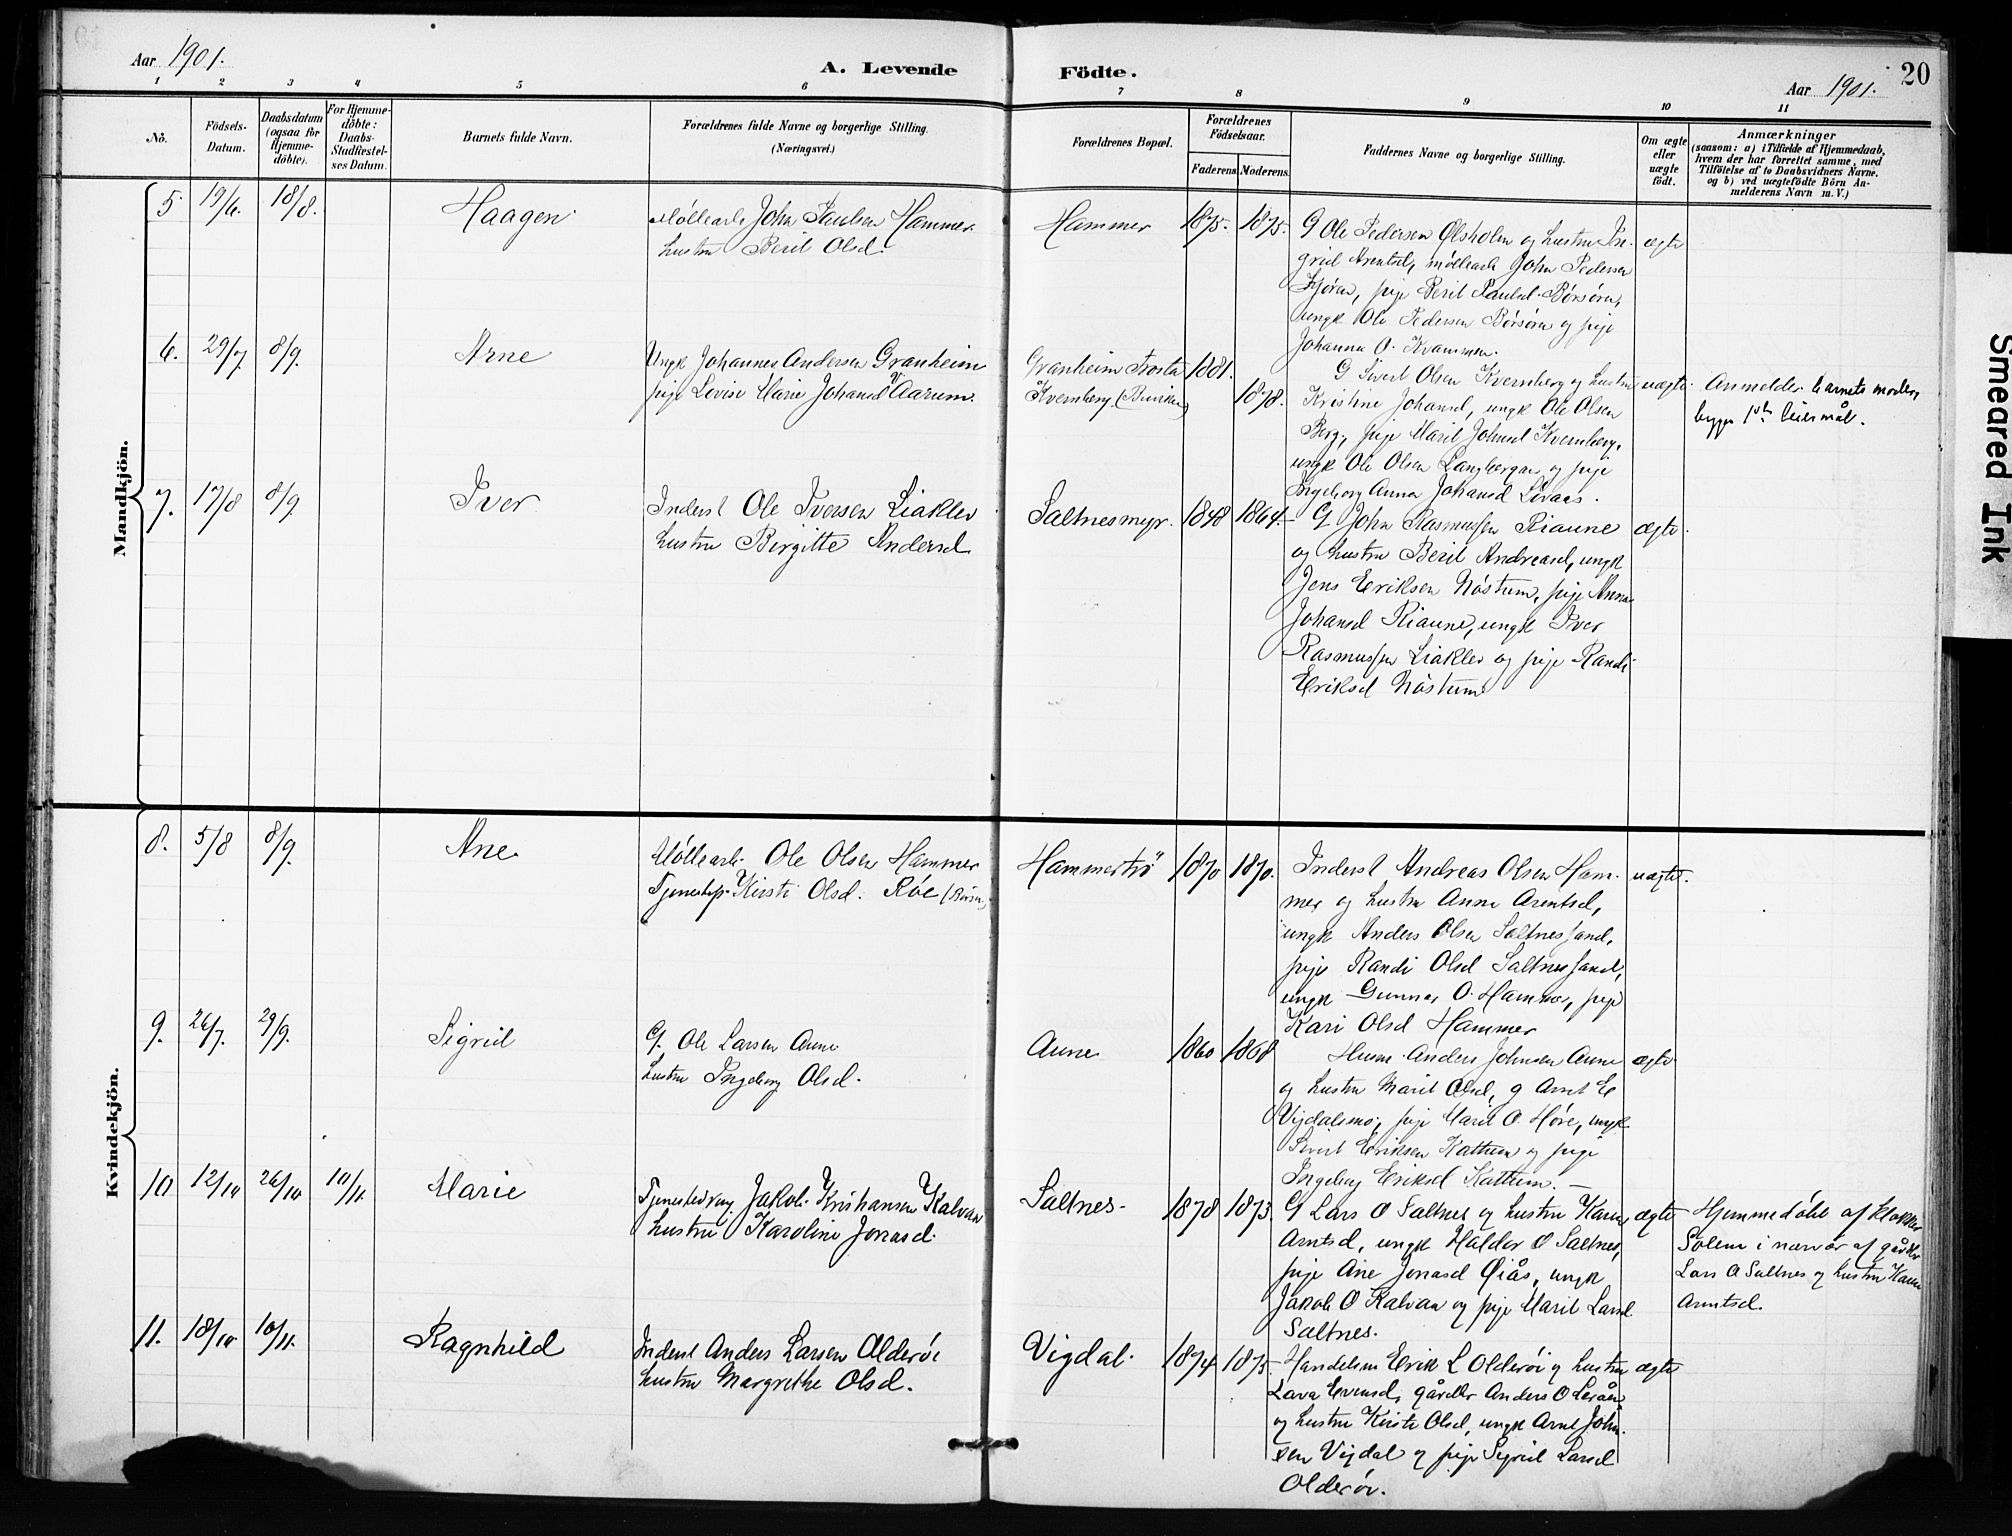 Aar 1901.
A. Levende Födte.
Aar 1901.
20
1 2 3 4 5 6 7 8 9 10 11
No.
Födsels-
Datum.
Daabsdatum
(ogsaa for
Hjemme-
döbte).
For Hjemme-
döbte:
Daabs-
Stadfæstel-
ses Datum.
Barnets fulde Navn.
Forældrenes fulde Navne og borgerlige Stilling.
(Næringsvei.)
Forældrenes Bopæl.
Forældrenes
Födselsaar.
Faderens.
Moderens.
Faddernes Navne og borgerlige Stilling.
Om ægte
eller
uægte
födt.
Anmærkninger
(saasom: a) i Tilfælde af Hjemmedaab,
hvem der har forrettet samme, med
Tilföielse af to Daabsvidners Navne,
og b) ved uægtefödte Börn An-
melderens Navn m. V.)
Mandkjön.
5 19/6. 18/8. Haagen
Møllearb John Paulsen Hammer
hustru Beril Olsd.
Hammer 1875. 1875.
G Ole Pedersen Ølsholm og hustru In-
grid Arentsd, møllearb John Pedersen
pige Beril Paulsd Børsøra,
ungk Ole Pedersen Børsøra og pige
Johanna O. Kvammen.
ægte
6. 29/7. 8/9. Arne
Ungk Johannes Andersen Granheim
pige Lovise Marie Johansd Aarum.
Granheim Frosta 1881.
Kvernberg 1878.
G Sivert Olsen Kvernberg og hustru
Kristine Johansd, ungk Ole Olsen
Berg, pige Marit Johnsd Kvernberg,
ungk Ole Olsen og pige
Ingeborg Anna Johansd
uægte.
Anmelder barnets moder,
begges 1ste leiermål.
7. 17/8 8/9. Iver
Inderst Ole Iversen Liaklev
hustru Birgitte Andersd
Saltnesmyr. 1848 1864
G John Rasmussen Riaune
og hustru Beril Andreasd, ungk
Jens Eriksen Nöstum, pige Anna
Johansd Riaune, ungk Iver
Rasmussen Liaklev og pige Randi
Eriksd Nöstum
ægte.
Kvindekjön.
8. 5/8 8/9. Ane
Møllearb. Ole Olsen Hammer
Tjenestep. Kirsti Olsd. Röe
Hammertrö 1870 1870.
Inderst Andreas Olsen Ham-
mer og hustru Anne Arentsd,
ungk Anders Olsen Saltnessand,
pige Randi Olsd Saltnessand,
ungk Gunnar O. Hammer, pige
Kari Olsd Hammer
uægte.
9. 26/7. 29/9. Sigrid
G. Ole Larsen Aune
hustru Ingeborg Olsd.
Aune 1860 1868
Husm. Anders Johnsen Aune
og hustru Marit Olsd, g Arnt E
Vigdalsmo, pige Marit O. Høre, ungk
Sivert Eriksen Kattum og pige
Ingeborg Eriksd Kattum.
ægte
10 12/10 26/10 10/11. Marie
Tjenestedreng Jakob Kristiansen Kalvaa
hustru Karoline Jonasd.
Saltnes. 1878 1873.
G Lars O Saltnes og hustru Karen
Arntsd, ungk Haldor O Saltnes,
pige Ane Jonasd Øiås, ungk
Jakob O Kalvaa og pige Marit Larsd
Saltnes.
ægte
Hjemmedøbt af klokker
Solem i nærvær af gårdbr
Lars O Saltnes og hustru Karen
Arntsd.
11. 18/10 10/11. Ragnhild
Inderst Anders Larsen Olderøi
hustru Margrethe Olsd.
Vigdal. 1874 1875.
Handelsm Erik L Olderøi og hustru
Lava Evensd, gårdbr Anders O
og hustru Kirsti Olsd, ungk Arnt John-
sen Vigdal og pige Sigrid Larsd
Olderøi.
ægte
Smeared Ink